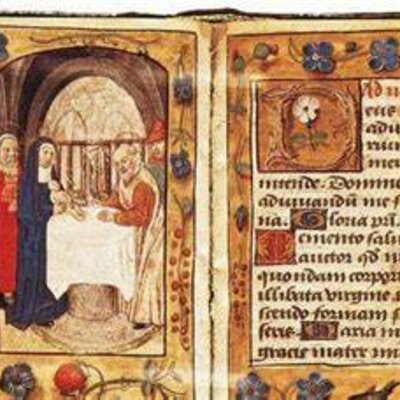 Ad u
eus
adu
rium
me
intende. Domine
adiuuandū me f
na. Gloria pri.
Memento salu
auctor qd n
quondam corpor
illibata virgine
scendo formam f
seris. Maria m
gracie mater mi